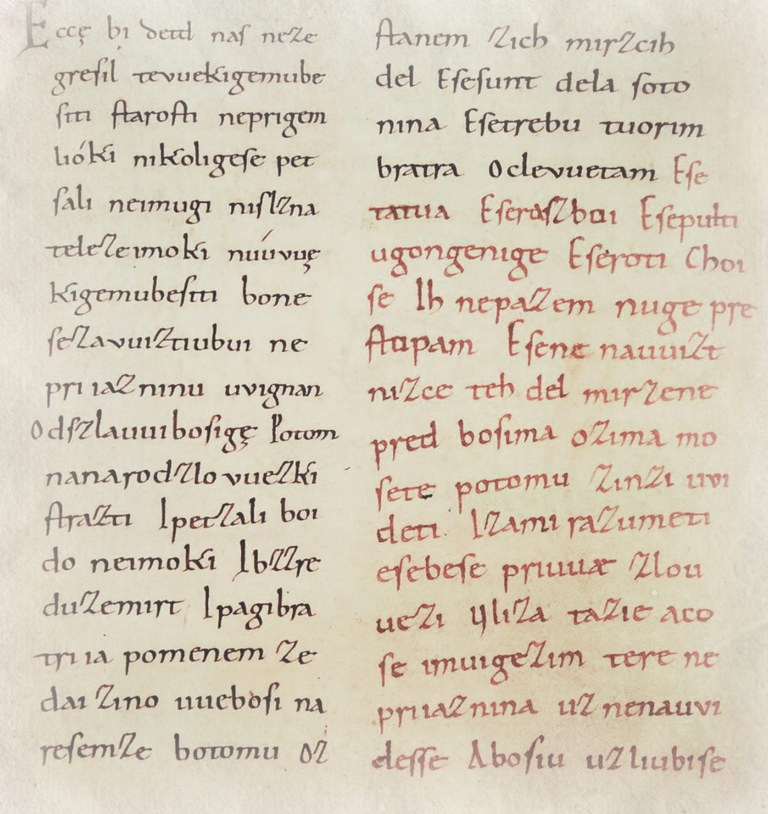 Eccę bi detd naſ neze
greſil tevuekigemube
ſiti ſtaroſti neprigem
lióki nikoligeſe pet
ſali neimugi niſlzna
telezeimoki núúvuę
kigemubeſiti bone
ſezavuiztiubui ne
priiaznninu uvignan
Odſzlauuiboſigę Potom
nanarodzlovuezki
ſtrazti Ipetzali boi
do neimoki Ibzzre
duzemirt Ipagibra
triia pomenem ze
dai zino uuebóſi na
reſemze botomu oz
ſtanem zich mirzcih
del Eſeſunt dela ſoto
nina Eſetrebu tuorim
bratra Oclevuetam Eſe
tatua Eſeraſzboi Eſepulti
ugongenige Eſeroti Choi
ſe Ih nepazem nuge pre
ſtopam Eſene nauuizt
nizce teh del mirzene
pred boſima ozima mo
ſete potomu zinzi uvi
deti Izami razumeti
eſebeſe priuuæ zlou
uezi Uliza tazie aco
ſe imuigezim tere ne
priiaznina uz nenauvi
deſſe Aboſiu uzliubiſe